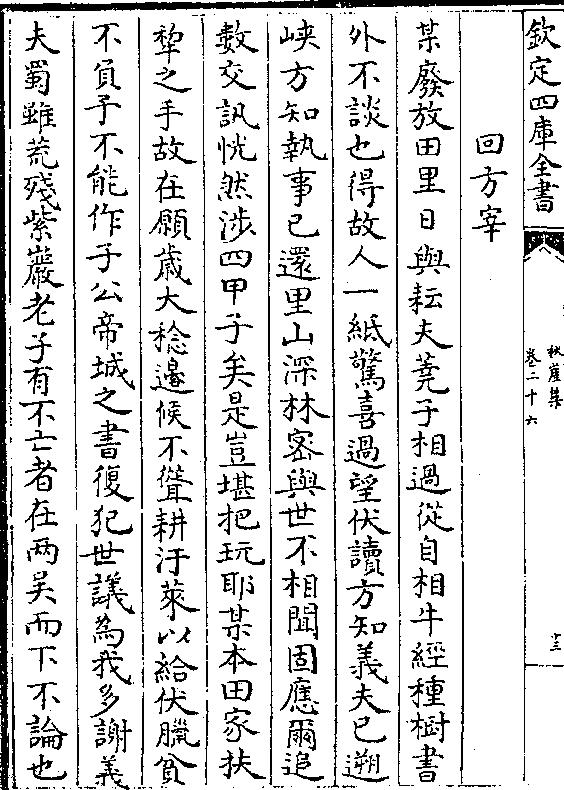 欽定四庫全書
秋崖集
卷二十六
十三
回方宰
某廢放田里日與耘夫蕘子相過從自相牛經種樹書
外不談也得故人一紙驚喜過望伏讀方知義夫已遡
峽方知執事已還里山深林密與世不相聞固應爾追
數交訊恍然涉四甲子矣是豈堪把玩耶某本田家扶
犂之手故在願歲大稔邊候不聳耕汙萊以給伏臘貧
不負予不能作子公帝城之書復犯世議為我多謝義
夫蜀雖荒殘紫巖老子有不亡者在两吴而下不論也